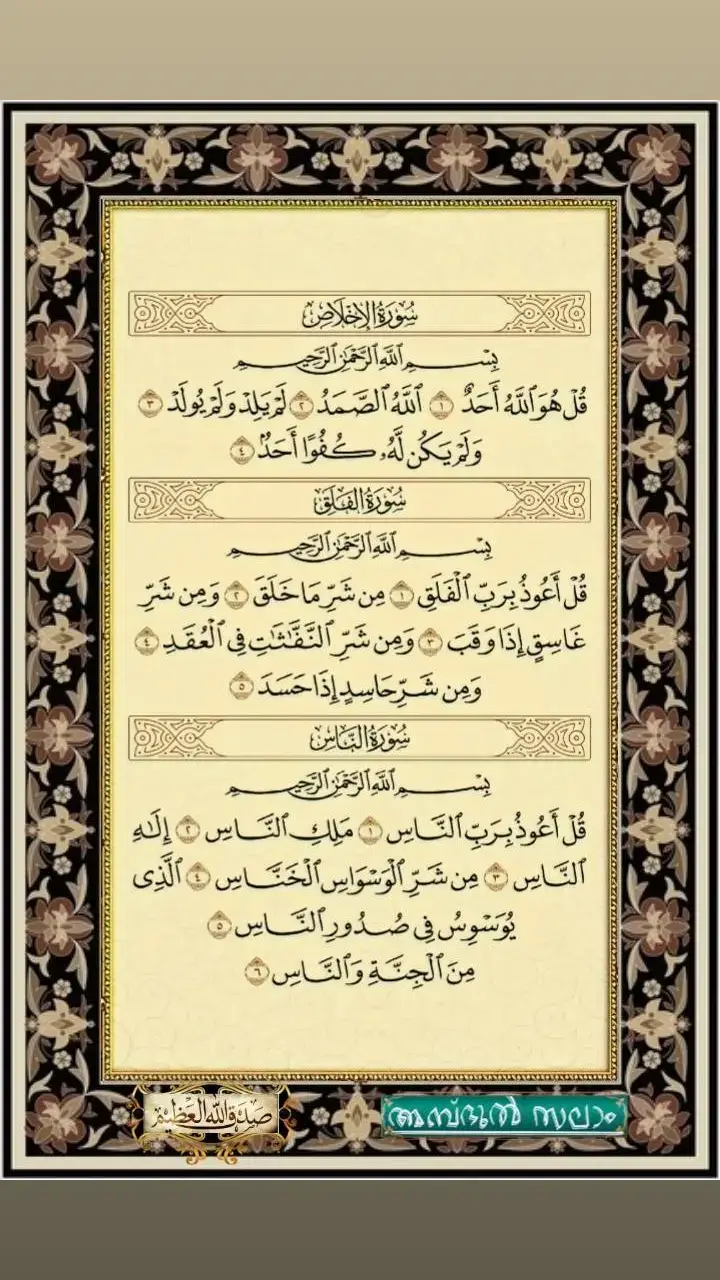 سُورَةُ الإِخْلَاصِ
بِسْمِ ٱللَّهِ ٱلرَّحْمَٰنِ ٱلرَّحِيمِ
قُلْ هُوَ ٱللَّهُ أَحَدٌ ١ ٱللَّهُ ٱلصَّمَدُ ٢ لَمْ يَلِدْ وَلَمْ يُولَدْ ٣
وَلَمْ يَكُن لَّهُۥ كُفُوًا أَحَدٌۢ ٤
سُورَةُ الفَلَقِ
بِسْمِ ٱللَّهِ ٱلرَّحْمَٰنِ ٱلرَّحِيمِ
قُلْ أَعُوذُ بِرَبِّ ٱلْفَلَقِ ١ مِن شَرِّ مَا خَلَقَ ٢ وَمِن شَرِّ
غَاسِقٍ إِذَا وَقَبَ ٣ وَمِن شَرِّ ٱلنَّفَّٰثَٰتِ فِى ٱلْعُقَدِ ٤
وَمِن شَرِّ حَاسِدٍ إِذَا حَسَدَ ٥
سُورَةُ النَّاسِ
بِسْمِ ٱللَّهِ ٱلرَّحْمَٰنِ ٱلرَّحِيمِ
قُلْ أَعُوذُ بِرَبِّ ٱلنَّاسِ ١ مَلِكِ ٱلنَّاسِ ٢ إِلَٰهِ
ٱلنَّاسِ ٣ مِن شَرِّ ٱلْوَسْوَاسِ ٱلْخَنَّاسِ ٤ ٱلَّذِى
يُوَسْوِسُ فِى صُدُورِ ٱلنَّاسِ ٥
مِنَ ٱلْجِنَّةِ وَٱلنَّاسِ ٦
صَدَقَ اللَّهُ الْعَظِيمُ
അബ്ദുൽ സലാം